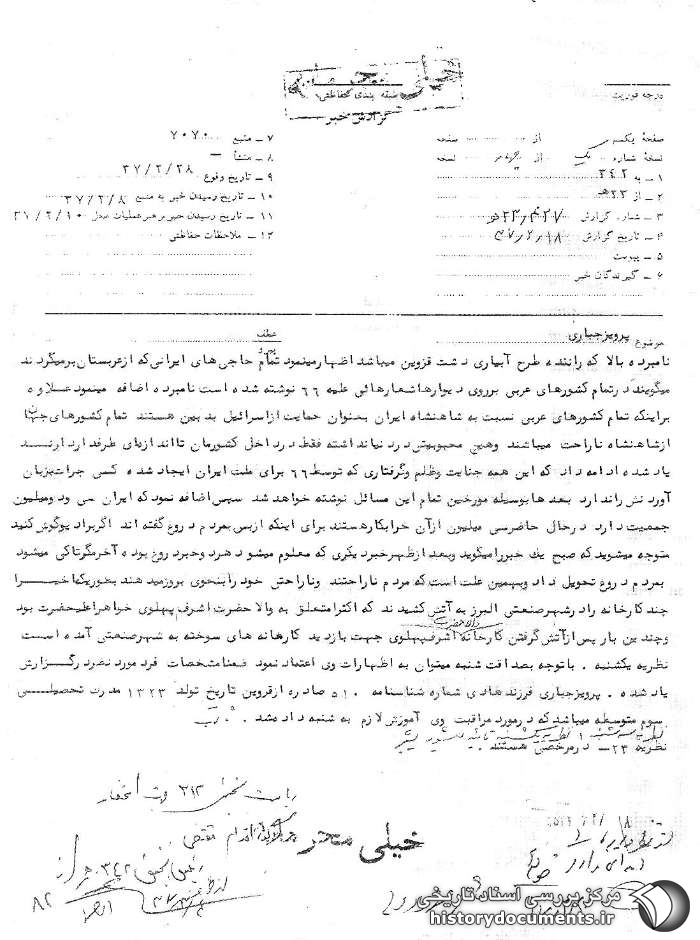 خیلی محرمانه
طبقه بندی حفاظتی
گزارش خبر
درجه فوریت
صفحهٔ یکم از صفحه
نسخهٔ شماره یک از چهار نسخه
۱ - به ۳۴۲
۲ - از ۲۳ هـ
۳ - شماره گزارش
۴ - تاریخ گزارش ۳۷/۲/۱۸
۵ - پیوست
۶ - گیرندگان خبر
۷ - منبع ۷۰۷۰
۸ - منشأ -
۹ - تاریخ وقوع ۳۷/۲/۲۸
۱۰ - تاریخ رسیدن خبر به منبع ۳۷/۲/۸
۱۱ - تاریخ رسیدن خبر برهبر عملیات محل ۳۷/۲/۱۰
۱۲ - ملاحظات حفاظتی
موضوع پرویز جباری
عطف
نامبرده بالا که راننده طرح آبیاری دشت قزوین میباشد اظهارمینمود تمام حاجی های ایرانی که ازعربستان برمیگردند
میگویند درتمام کشورهای عربی برروی دیوارهاشعارهائی علیه ۶۶ نوشته شده است نامبرده اضافه مینمود علاوه
براینکه تمام کشورهای عربی نسبت به شاهنشاه ایران بعنوان حمایت ازاسرائیل بدبین هستند تمام کشورهای جهان
ازشاهنشاه ناراحت میباشند وهیچ محبوبیتی دردنیانداشته فقط درداخل کشورمان تااندازه‌ای طرفدارد ارنسد
یاد شده ادامه داد که این همه جنایت وظلم وگرفتاری که توسط ۶۶ برای ملت ایران ایجاد شده کسی جرات بزبان
آوردنش راندارد بعدهابوسیله مورخین تمام این مسائل نوشته خواهد شد سپس اضافه نمود که ایران سی ودومیلیون
جمعیت دارد درحال حاضرسی میلیون ازآن خرابکارهستند برای اینکه ازبس بمردم دروغ گفته اند اگربرادیوگوش کنید
متوجه میشوید که صبح یک خبررامیگوید وبعدازظهرخبردیگری که معلوم میشود هردوخبردروغ بوده آخرمگرتاکی میشود
بمردم دروغ تحویل داد وبهمین علت است که مردم ناراحتند وناراحتی خودرابنحوی بروزمیدهند بطوریکه اخیرا
چندکارخانه رادرشهرصنعتی البرز به آتش کشیدند که اکثرامتعلق به والا حضرت اشرف پهلوی خواهراعلیحضرت بود
وچندین بارپس ازآتش گرفتن کارخانه والاحضرت اشرف پهلوی جهت بازدید کارخانه های سوخته به شهرصنعتی آمده است
نظریه یکشنبه . باتوجه بصداقت شنبه میتوان به اظهارات وی اعتماد نمود ضمنامشخصات فردموردنظردرگزارش
یادشده . پرویزجباری فرزندهادی شماره شناسنامه ۵۱۰ صادره ازقزوین تاریخ تولد ۱۳۲۳ مدرک تحصیلی
سوم متوسطه میباشد که درمورد مراقبت وی آموزش لازم به شنبه داده شد .
نظریه سه شنبه . نظریه یکشنبه تایید میشود
نظریه ۲۳ - درمرخصی هستند .
ریاست بخش ۳۱۲
خیلی محرمانه
رئیس بخش ۳۴۲
۸۲
مرکز بررسی اسناد تاریخی
historydocuments.ir